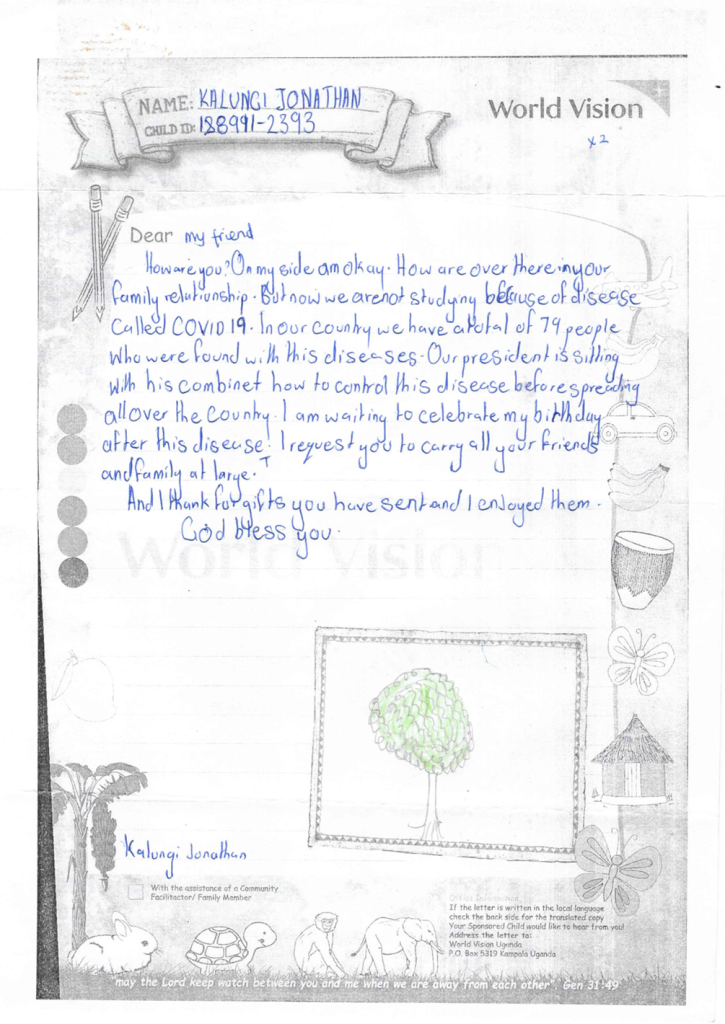 NAME: KALUNGI JONATHAN
CHILD ID: 188991-2393
World Vision
x2
Dear my friend
How are you? On my side am okay. How are over there in your
family relationship. But now we are not studying because of disease
Called COVID 19. In our country we have a total of 79 people
who were found with this diseases. Our president is sitting
with his combinet how to control this disease before spreading
all over the country. I am waiting to celebrate my birthday
after this disease. I request you to carry all your friends
and family at large.
And I thank for gifts you have sent and I enjoyed them.
God bless you.
World Vision
Kalungi Jonathan
With the assistance of a Community
Facilitator/ Family Member
If the letter is written in the local language
check the back side for the translated copy
Your Sponsored Child would like to hear from you!
Address the letter to:
World Vision Uganda
P.O. Box 5319 Kampala Uganda
"may the Lord keep watch between you and me when we are away from each other" Gen 31:49